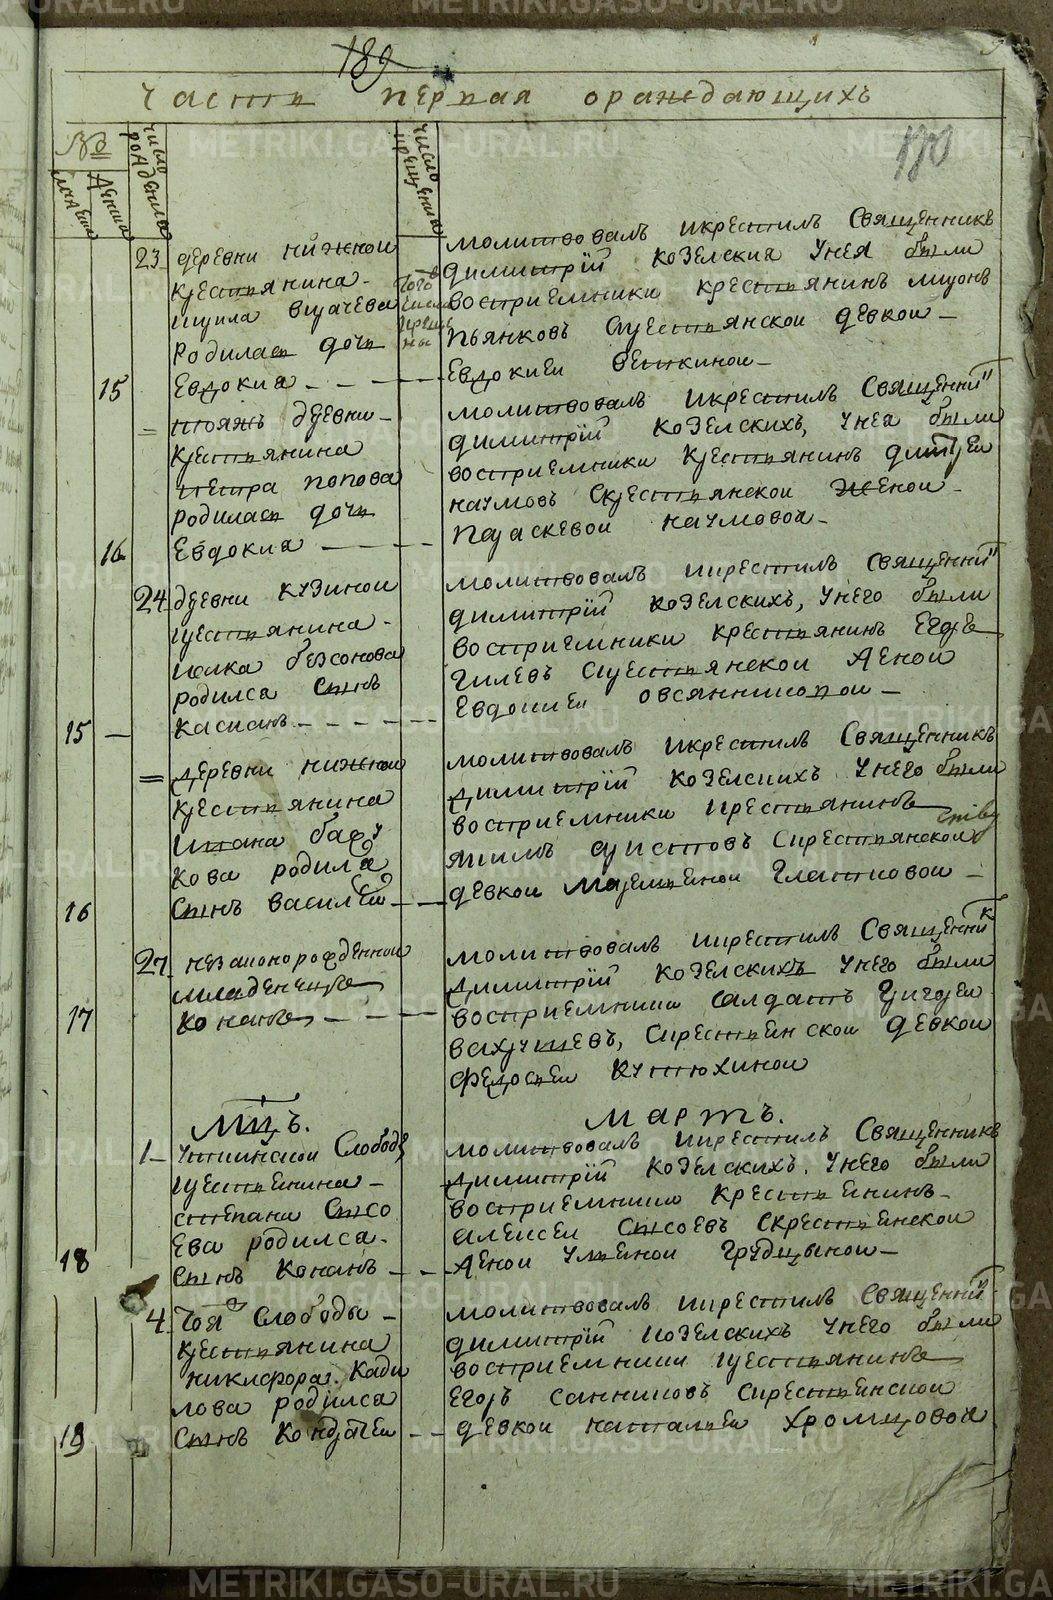 189
часть первая ораждающихъ
190
№
число рождения
число крещения
мужеска
женска
23 деревни нижной
крестьянина
вшачева
родилась дочь
15 Евдокиа
того числа крещены
молитвовалъ икрестилъ Священникъ
димитрїй козелския Унея были
восприемники крестьянинъ миронъ
пьянковъ скрестьянскои девкои
Евдокиеи Вешкинои
= тояжъ древни
крестьянина
петра попова
родилась дочь
16 Евдокиа
молитвовалъ икрестилъ Священни
димитрїй козелскихъ, Унея были
восприемники крестьянинъ дмитреи
наумовъ скрестьянскои женои
параскевои наумовои
24 древни кузинои
крестьянина
исака безсонова
родилса сынъ
15 касианъ
молитвовалъ икрестилъ Священни
димитрїй козелскихъ, Унего были
восприемники крестьянинъ Егоръ
гилевъ скрестьянскои женои
Евдокиеи овсянниковои
= деревни нижнои
крестьянина
Ивана бажукова
родилса
16 сынъ василей
молитвовалъ икрестилъ Священникъ
димитрїй козелскихъ Унего были
восприемники крестьянинъ
якимъ аристовъ скрестьянской
девкои глатковои
27 незаконорожденнои
младенецъ
17 конанъ
молитвовалъ икрестилъ Священник
димитрїй козелскихъ Унего были
восприемники салдатъ григореи
вахрушевъ, скрестьенскои девкои
федосьеи кутюхинои
Мцъ.
Мартъ.
1 Уткинскои Слободы
крестьенина
степана сысоева родилса
18 сынъ конанъ
молитвовалъ икрестилъ Священникъ
димитрїй козелскихъ. Унего были
восприемники крестьенинъ
алексеи сысоевъ скрестьенскои
женои Ульенои грудцынои
4 тоя слободы
крестьянина
никифора Кадилова родилса
19 сынъ кондратеи
молитвовалъ икрестилъ Священни
димитрїй козелскихъ Унего были
восприемники крестьянинъ
Егоръ санниковъ скрестьенскои
девкои натальеи хромцовои
METRIKI.GASO-URAL.RU